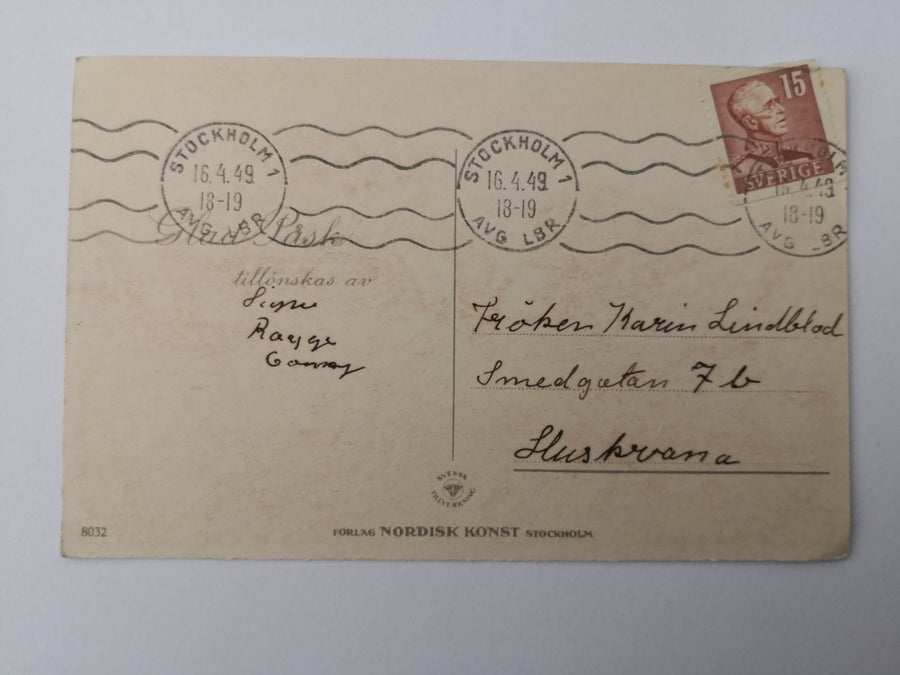 15
SVERIGE
STOCKHOLM 1
16.4.49
18-19
AVG LBR
STOCKHOLM 1
16.4.49
18-19
AVG LBR
16.4.49
18-19
AVG LBR
Glad Påsk
tillönskas av
Ragge
Conny
Fröken Karin Lindblad
Smedgatan 7 b
Huskvarna
SVENSK
TILLVERKNING
8032
FÖRLAG NORDISK KONST STOCKHOLM